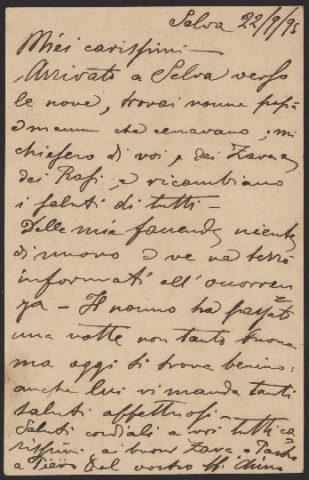 Selva 22/9/95
Miei carissimi —
Arrivato a Selva verso
le nove, trovai nonno papà
e mamma che cenavano; mi
chiesero di voi e dei Zava e
dei Rosi, e ricambiano
i saluti di tutti —
Delle mie faccende niente
di nuovo e ve ne terrò
informati all'occorren
za — Il nonno ha passato
una notte non tanto buona
ma oggi si trova benino:
anche lui vi manda tanti
saluti affettuosi —
Saluti cordiali a voi tutti ca
rissimi ai buoni Zava e
a Piero dal vostro